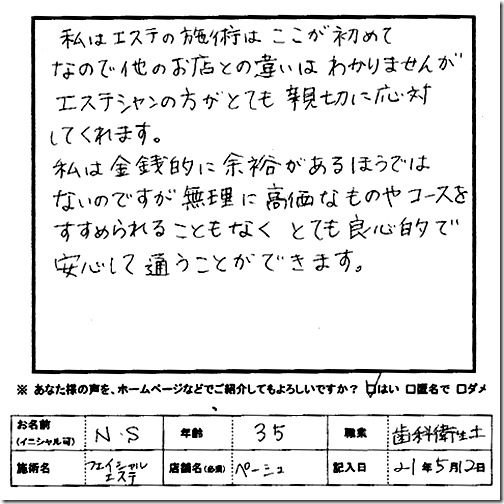 私はエステの施術は ここが初めて
なので他のお店との違いは わかりませんが
エステシャンの方がとても 親切に応対
してくれます。
私は金銭的に余裕があるほうでは
ないのですが無理に高価なものやコースを
すすめられることもなく とても良心的で
安心して通うことができます。
※ あなた様の声を、ホームページなどでご紹介してもよろしいですか？ ☑はい □匿名で □ダメ
お名前(イニシャル可) N・S 年齢 35 職業 歯科衛生士
施術名 フェイシャルエステ 店舗名(必須) ペーシュ 記入日 21年5月12日